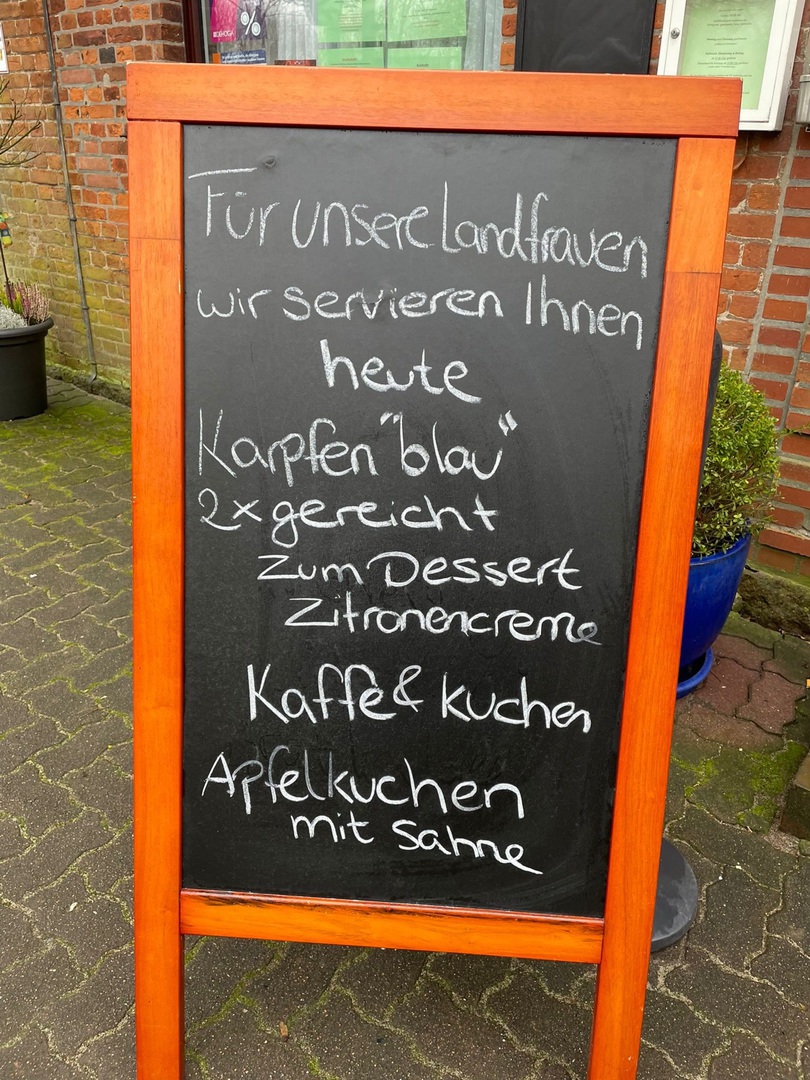 Für unsere Landfrauen
wir servieren Ihnen
heute
Karpfen "blau"
2x gereicht
zum Dessert
Zitronencreme
Kaffe & kuchen
Apfelkuchen
mit Sahne